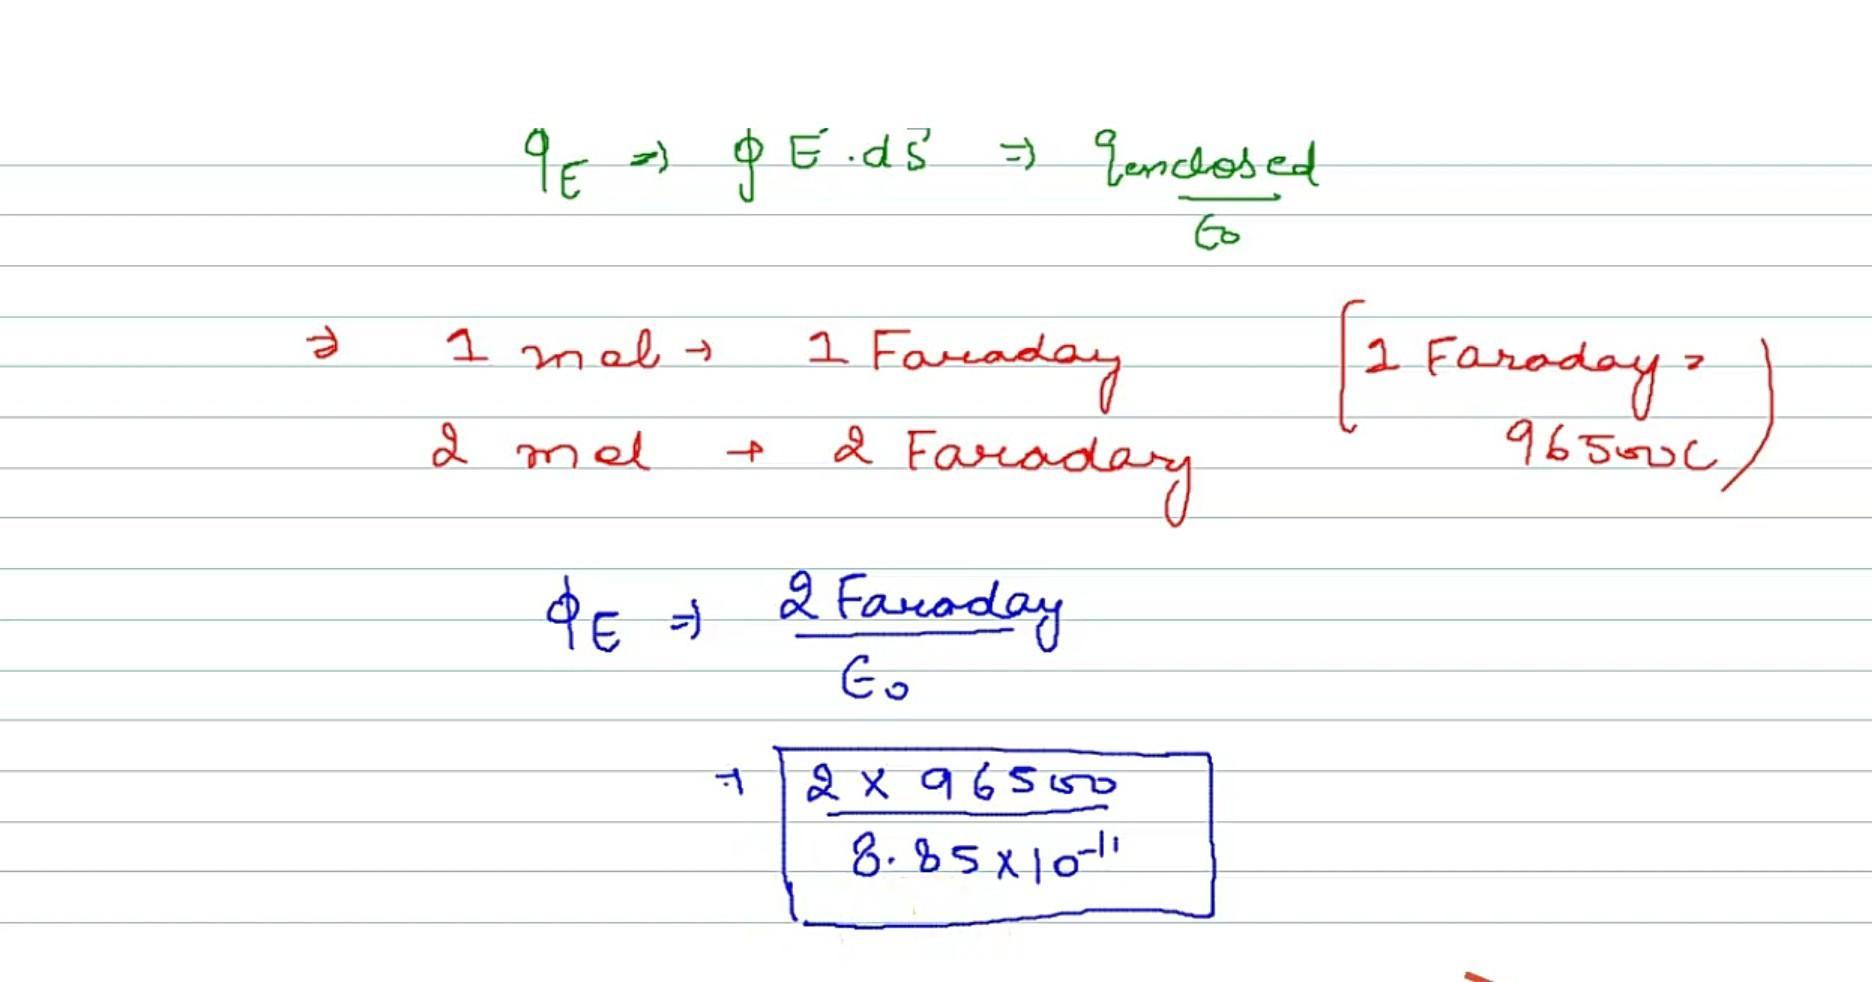 φ_E ⇒ ∮ E⃗ . ds⃗ ⇒ q_enclosed / ε₀
⇒ 1 mol → 1 Faraday [1 Faraday =
2 mol → 2 Faraday 96500C)
φ_E ⇒ 2 Faraday / ε₀
⇒ 2 × 96500 / 8.85 × 10⁻¹¹